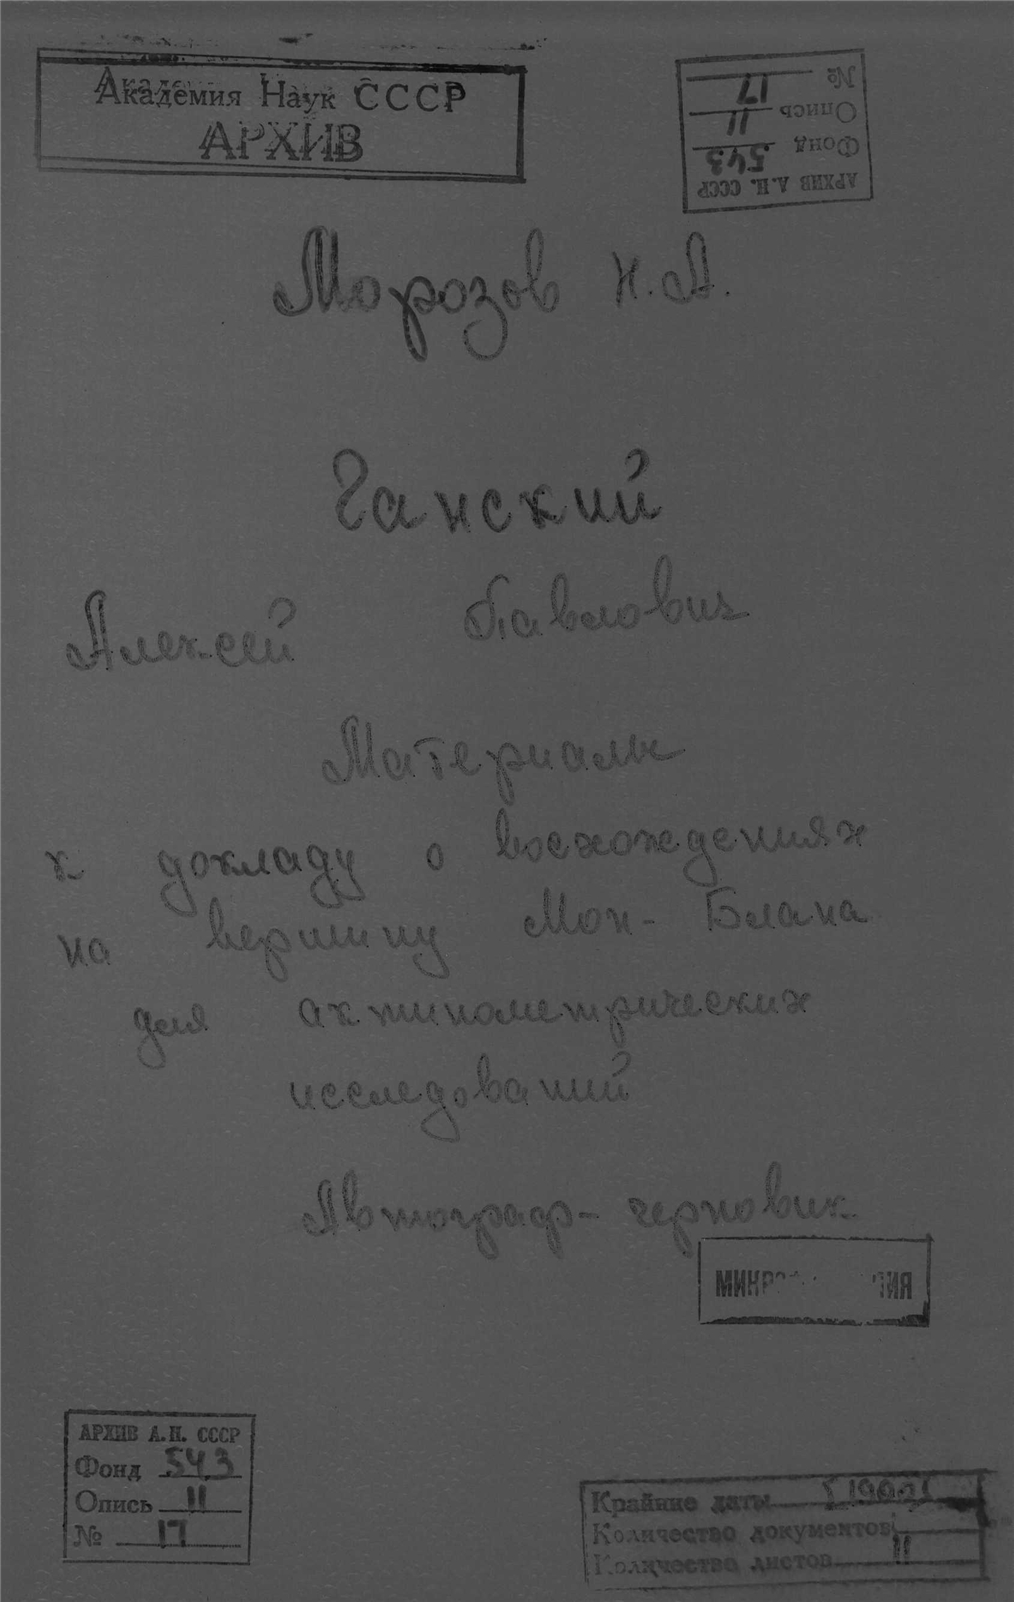 Академия Наук СССР
АРХИВ
АРХИВ А.Н. СССР
Фонд 543
Опись 11
№ 17
Морозов Н.А.
Ганский
Алексей Павлович
Материалы
к докладу о восхождениях
на вершину Мон-Блана
для актинометрических
исследований
Автограф-черновик
АРХИВ А.Н. СССР
Фонд 543
Опись 11
№ 17
Крайние даты
Количество документов
Количество листов 11